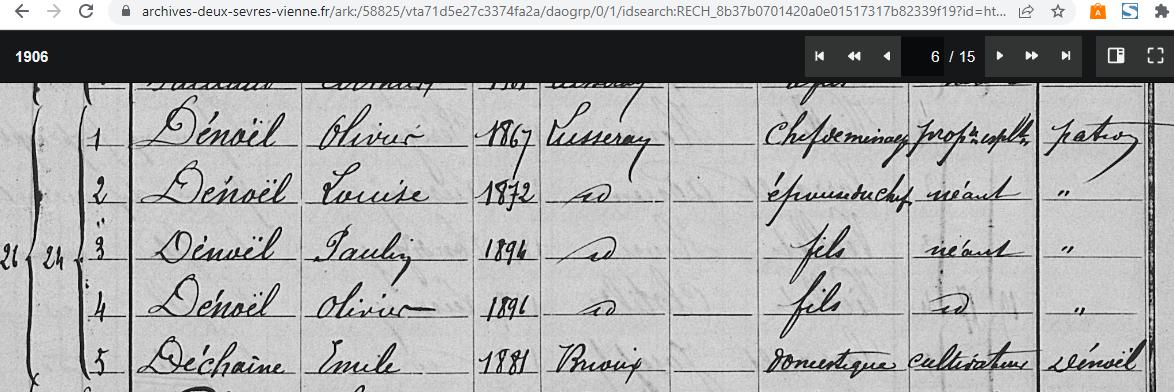 archives-deux-sevres-vienne.fr/ark:/58825/vta71d5e27c3374fa2a/daogrp/0/1/idsearch:RECH_8b37b0701420a0e01517317b82339f19?id=ht...
1906 6 / 15
1 Dénoël Olivier 1867 Lusseray chef de ménage prop.re expl.t patron
2 Dénoël Louise 1872 id épouse du chef néant "
26 24 3 Dénoël Paulin 1894 id fils néant "
4 Dénoël Olivier 1896 id fils id "
5 Déchaine Emile 1881 Brioux domestique cultivateur Dénoël